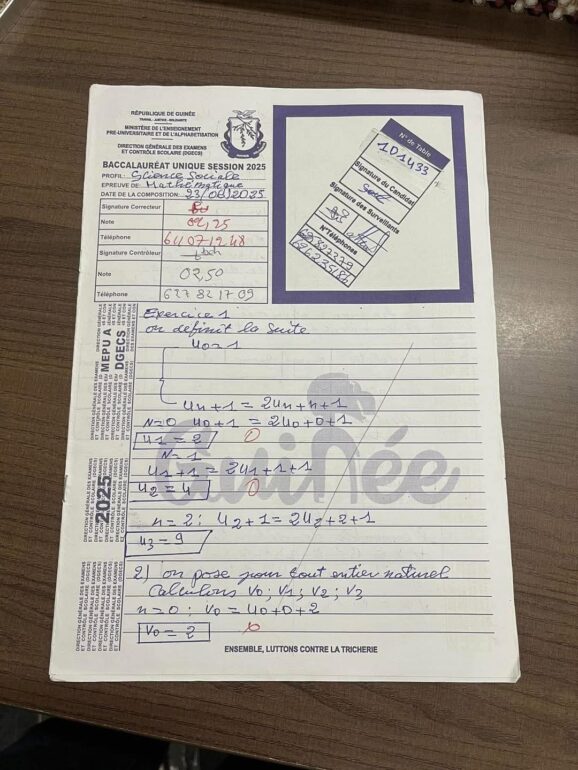 RÉPUBLIQUE DE GUINÉE
TRAVAIL - JUSTICE - SOLIDARITÉ
MINISTÈRE DE L'ENSEIGNEMENT
PRÉ-UNIVERSITAIRE ET DE L'ALPHABETISATION
DIRECTION GÉNÉRALE DES EXAMENS
ET CONTRÔLE SCOLAIRE (DGECS)
BACCALAURÉAT UNIQUE SESSION 2025
PROFIL: Science Sociale
EPREUVE DE: Mathématique
DATE DE LA COMPOSITION: 23/06/2025
Signature Correcteur
Note 02,25
Téléphone
Signature Contrôleur
Note 02,50
Téléphone 627 82 17 09
N° de Table
101433
Signature du Candidat
Signature des Surveillants
N°Téléphones
MEPU A
DGECS
2025
DIRECTION GÉNÉRALE DES EXAMENS
ET CONTRÔLE SCOLAIRE (DGECS)
Guinée
Exercice 1
on definit la suite
u0=1
un+1 = 2un+n+1
N=0 u0+1 = 2u0+0+1
u1 = 2 0
N=1
u1+1 = 2u1+1+1
u2 = 4 0
n=2: u2+1 = 2u2+2+1
u3 = 9
2) on pose pour tout entier naturel
Calculons v0; v1; v2; v3
n=0: v0 = u0+0+2
v0 = 2 0
ENSEMBLE, LUTTONS CONTRE LA TRICHERIE